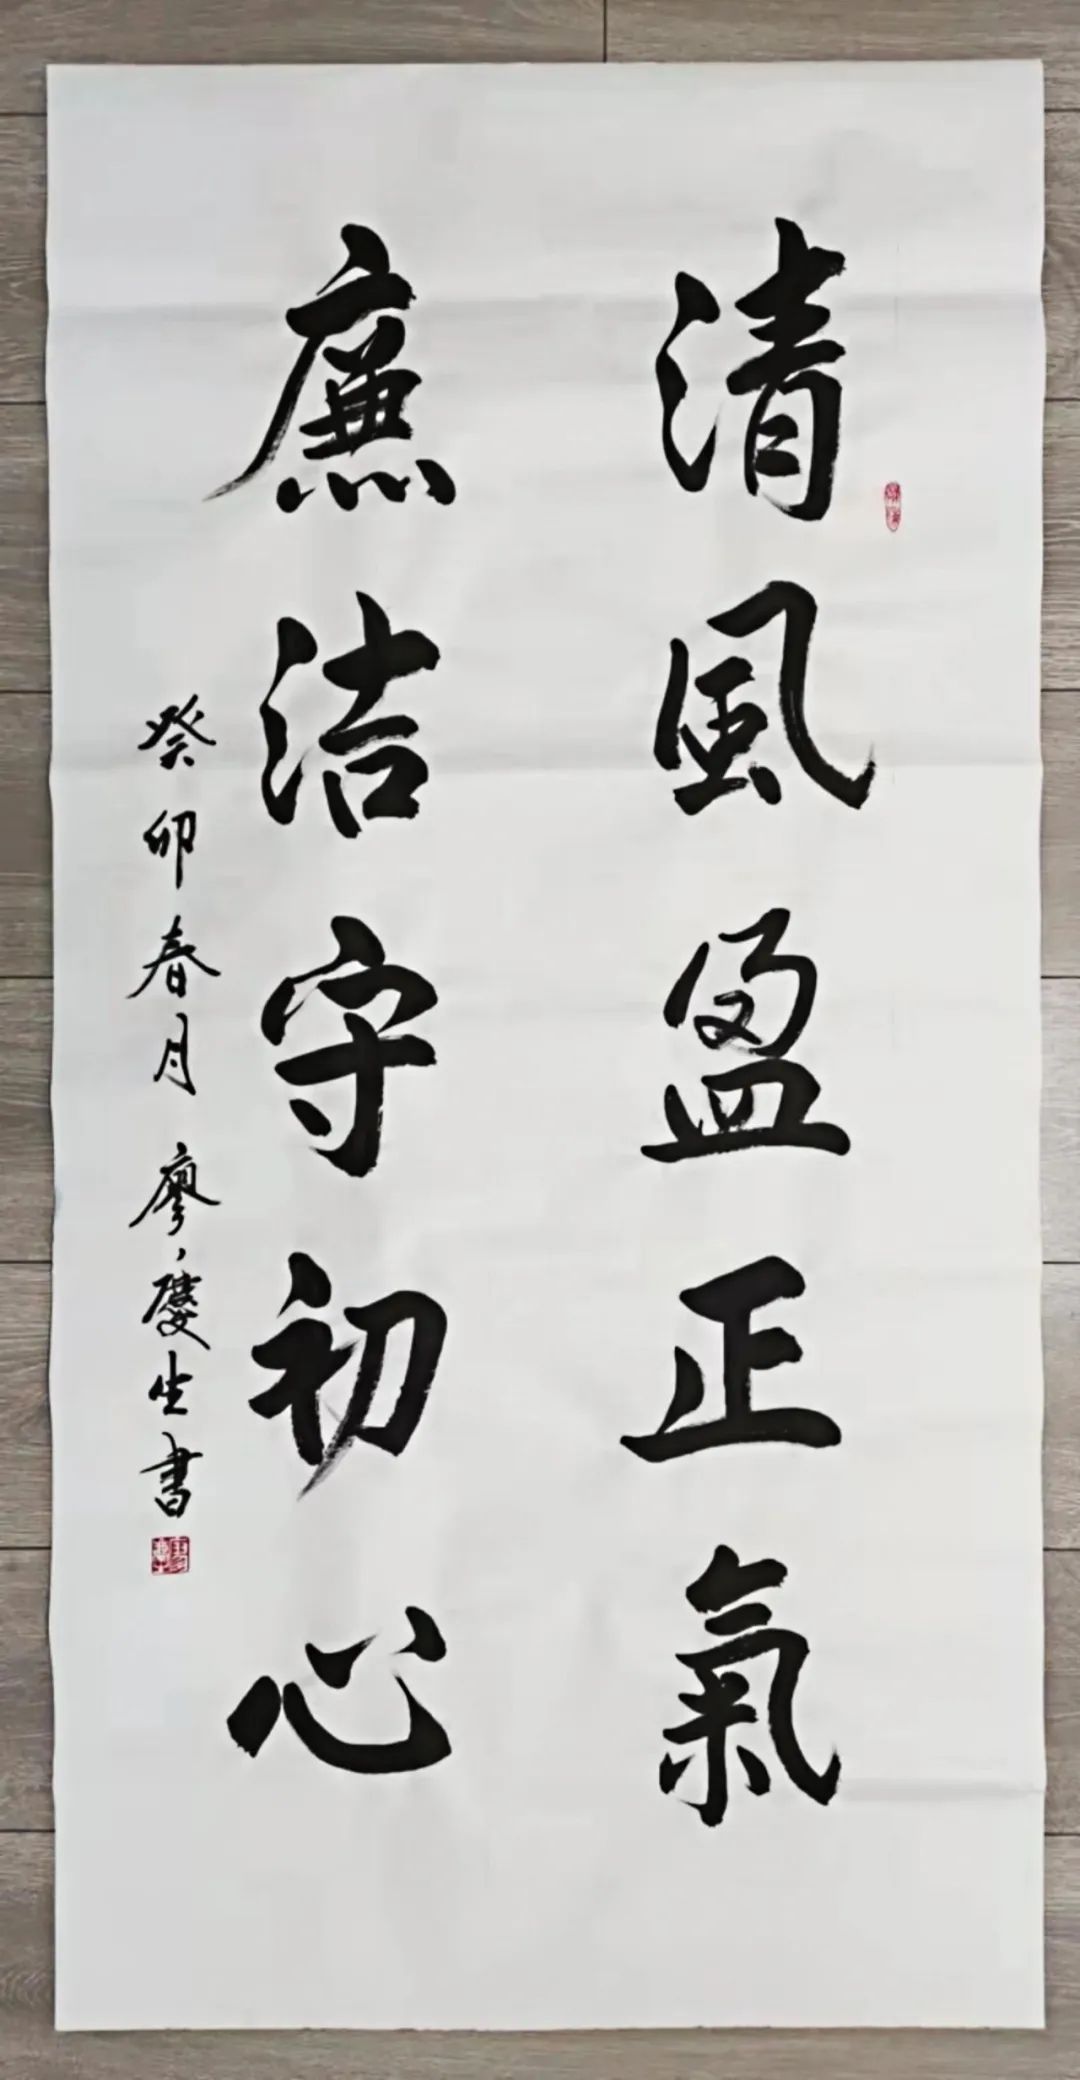 清風盈正氣
廉洁守初心
癸卯春月廖慶生書